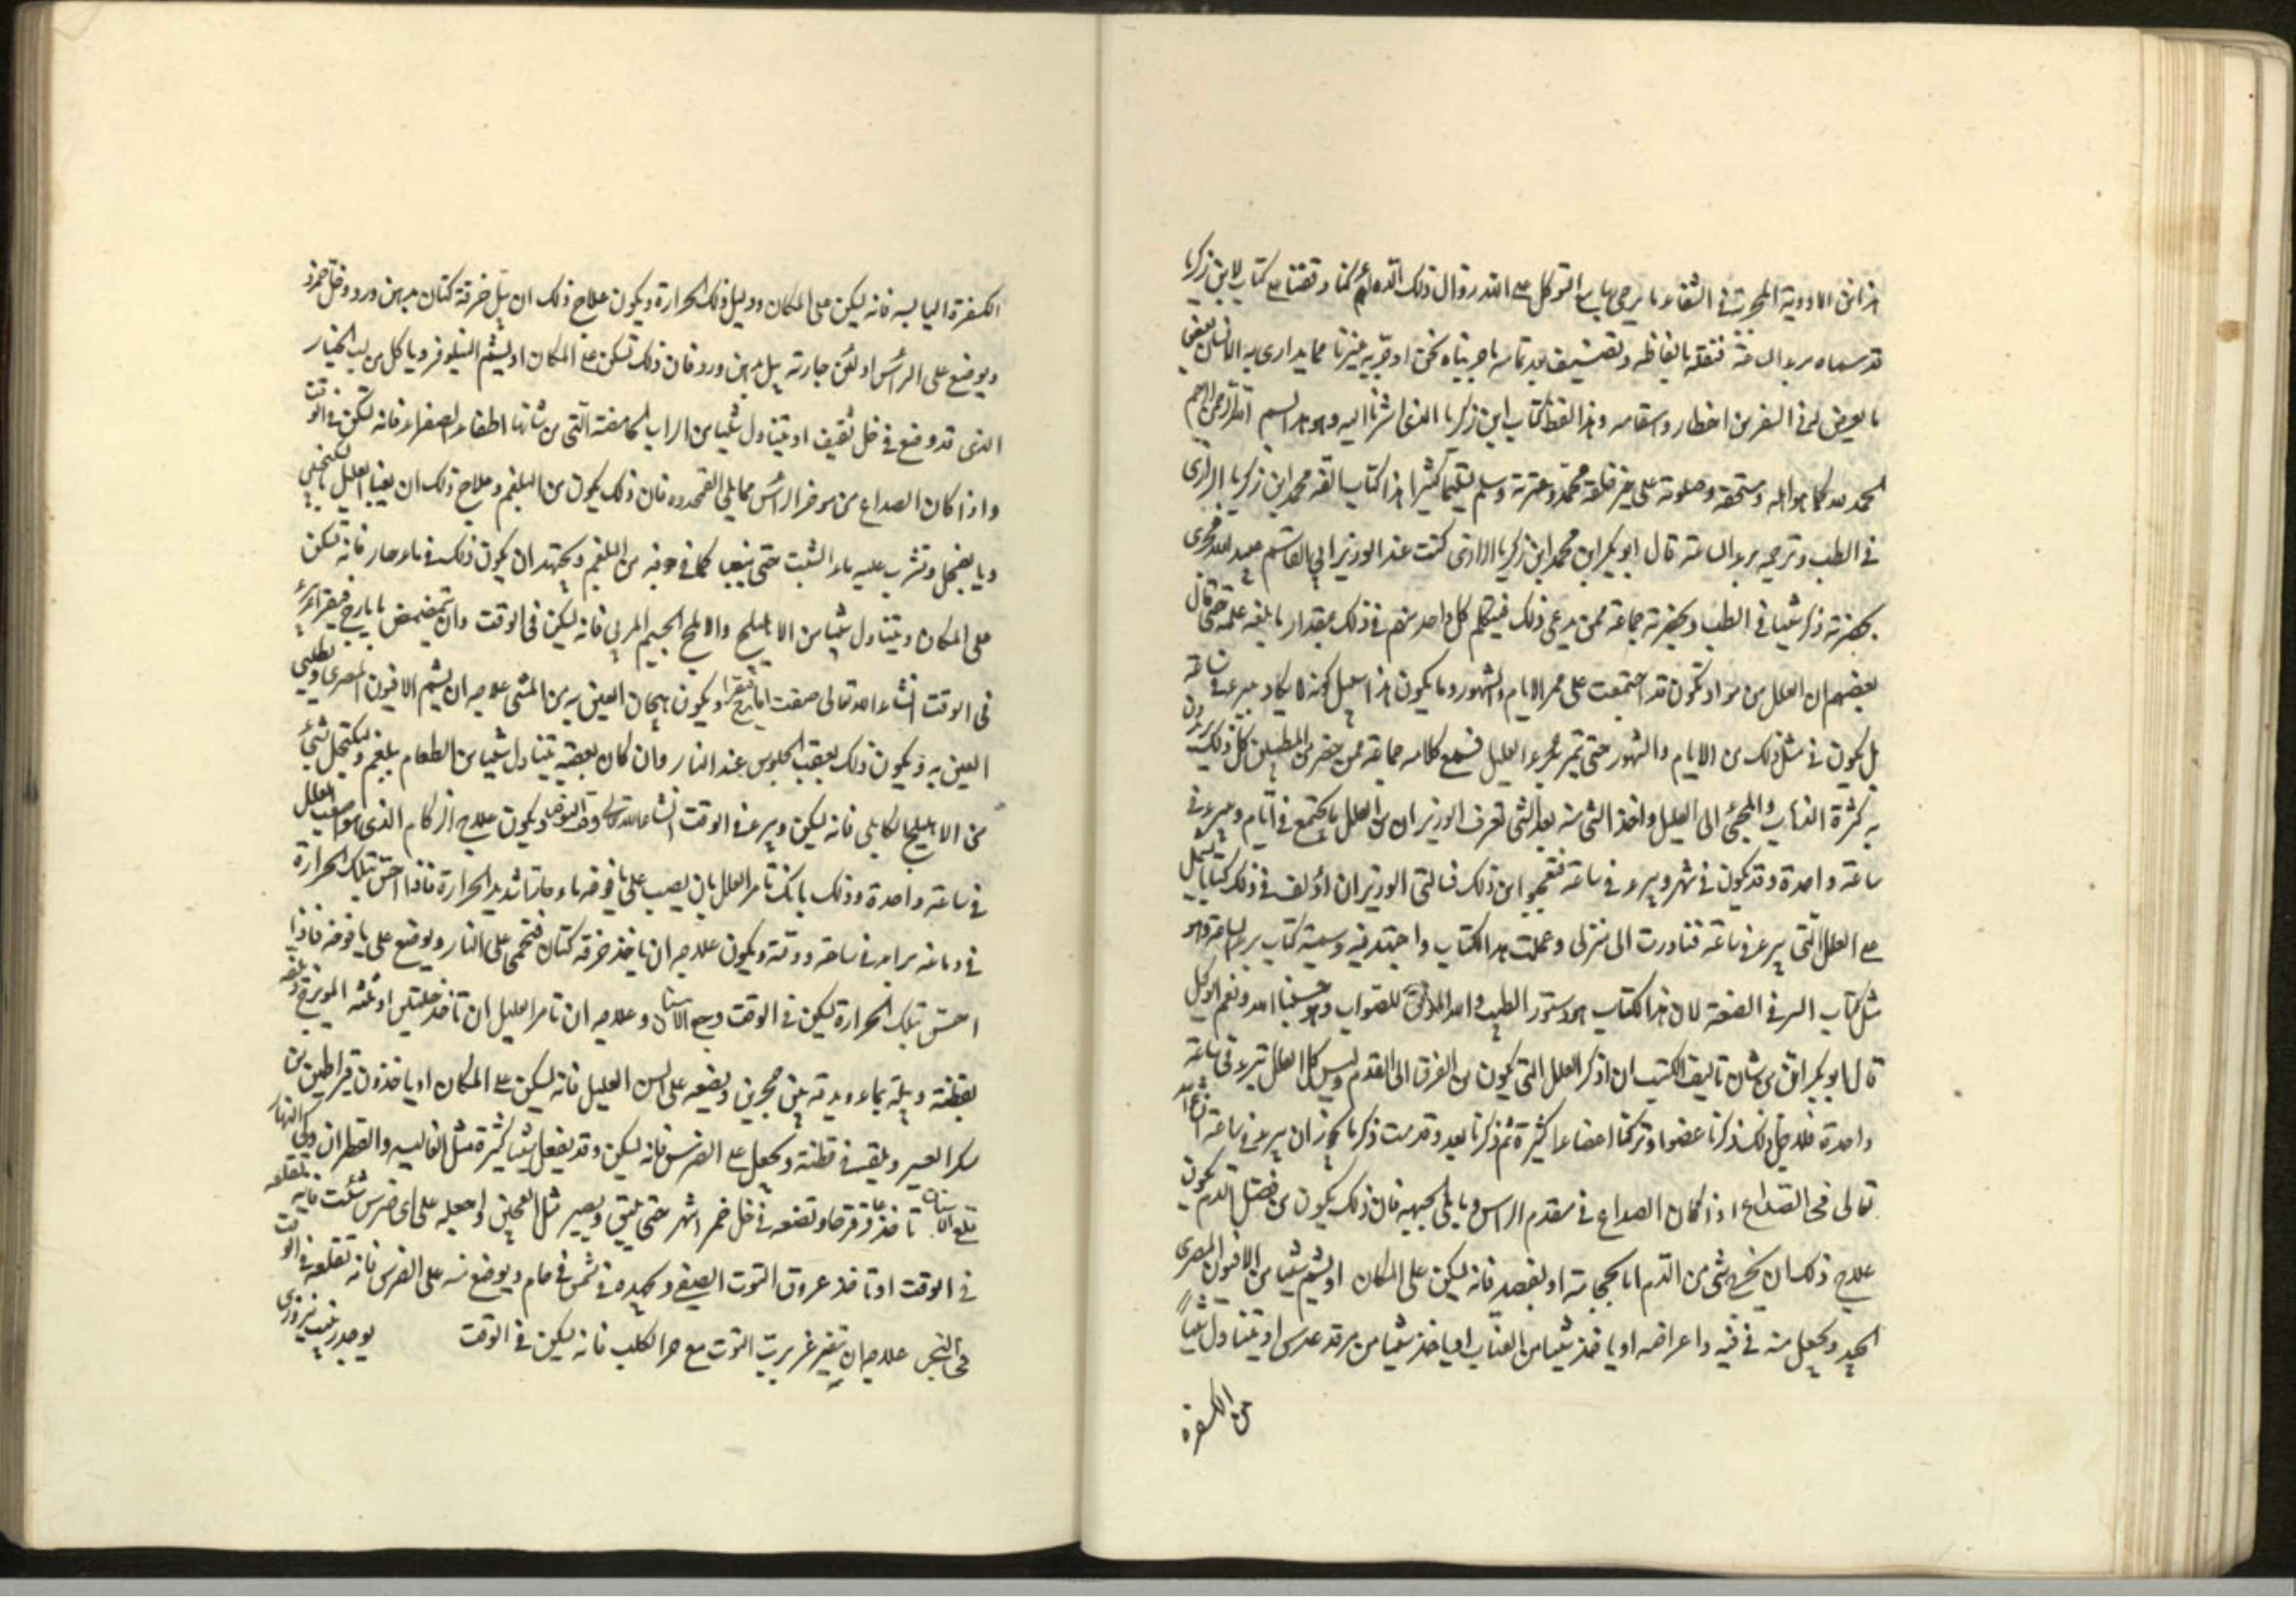 هذا من الادوية المجربة في الشفاء ما يرجى بها مع التوكل على الله وقال ذلك كنا وقفنا على كتاب لابن زكريا
قد سماه برء الساعة فنقله بالفاظه ونضيف بعد تمامه ما جربناه نحن او جربه غيرنا مما يداوى به الانسان بعض
ما يعرض له في السفر من اخطار واسقامه وهذا لفظ كتاب ابن زكريا الذي اشرنا اليه وهو هذا بسم الله الرحمن الرحيم
الحمد لله كما هو اهله ومستحقه وصلوته على خير خلقه محمد وعترته وسلم تسليما كثيرا هذا كتاب الفه محمد ابن زكريا الرازي
في الطب وترجمه برء الساعة قال ابو بكر ابن محمد ابن زكريا الرازي كنت عند الوزير ابي القاسم عبد الله فجرى
بحضرته ذكر شيئا في الطب وبحضرته جماعة ممن يدعي ذلك فيتكلم كل واحد منهم في ذلك بمقدار ما بلغه علمه حتى قال
بعضهم ان العلل من مواد تكون قد اجتمعت على ممر الايام والشهور وما يكون هذا سبيل كونه لا يكاد يبرء في ساعة
بل يكون في مثل ذلك من الايام والشهور حتى تتم برء العليل فسمع كلامه جماعة ممن حضر من المتطببين كل ذلك يريدون
به كثرة الذهاب والمجئ الى العليل واخذ الشئ منه بعد الشئ فعرف الوزير ان من العلل ما يجتمع في ايام ويبرء في
ساعة واحدة وقد يكون في شهر ويبرء في ساعة فتعجبوا من ذلك فسالني الوزير ان اؤلف في ذلك كتابا يشتمل
على العلل التي يبرء في ساعة فبادرت الى منزلي وعملت هذا الكتاب واجتهدت فيه وسميته كتاب برء الساعة وهو
مثل كتاب السر في الصنعة لان هذا الكتاب هو دستور الطب والله الموفق للصواب وهو حسبنا الله ونعم الوكيل
قال ابو بكر ان من شان تاليف الكتب ان اذكر العلل التي يكون من الفرق الى القدم وليس كل العلل تبرء في ساعة
واحدة فلاجل ذلك ذكرنا عضوا وتركنا اعضاء كثيرة ثم ذكرنا بعد وقدمت ذكر ما يجوز ان يبرء في ساعة انشاء الله
تعالى في الصداع اذا كان الصداع في مقدم الراس وما يلي الجبهة فان ذلك يكون من فضل الدم يكون
علاج ذلك ان يخرج شئ من الدم اما بحجامة او بفصد فانه يسكن على المكان او يشم شيئا من الافيون المصري
الجيد ويجعل منه في فيه واعراضه او ياخذ شيئا من العناب او ياخذ شيئا من مرقة عدس او يتناول شيئا
من الكسفرة
الكسفرة اليابسة فانه يسكن على المكان ودليل ذلك الحرارة ويكون علاج ذلك ان يبل خرقة كتان بدهن ورد وخل خمر
ويوضع على الراس او بدهن ورد فان ذلك تسكن على المكان او يشم النيلوفر وياكل من لب الخيار
الذي قد وضع في خل ثقيف او يتناول شيئا من الراب الحامضة التي من شانها اطفاء الصفراء فانه تسكن في الوقت
واذا كان الصداع من موخر الراس مما يلي القمحدوه فان ذلك يكون من البلغم وعلاج ذلك ان يقيأ العليل بالسكنجبين
وبالفجل وتشرب عليه ماء الشبت حتى يتقيا كما في جوفه من البلغم ويجتهد ان يكون ذلك في ماء حار فانه تسكن
على المكان ويتناول شيئا من الاهليلج والاملج المربى فانه يسكن في الوقت وان تمضمض بايارج فيقرا برء
في الوقت انشاء الله تعالى صفت ايارج فيقرا ويكون هيجان العين علاجه ان يشم الافيون المصري ويطلى
العين به ويكون ذلك بعقب الجلوس عند النار وان كان بعقبه يتناول شيئا من الطعام بلغم ويكتحل بشئ
من الاهليلج الكابلي فانه يسكن ويبرء في الوقت انشاء الله تعالى ويكون علاج الزكام الذي هو اصعب العلل
في ساعة واحدة وذلك بانك تامر العليل بان يصب على يافوخه ماء حارا شديد الحرارة فاذا احس بتلك الحرارة
في دماغه برا في ساعة ووقته ويكون علاجه ان ياخذ خرقة كتان فتحمى على النار ويوضع على يافوخه فاذا
احس بتلك الحرارة يسكن في الوقت وجع الاسنان وعلاجه ان تامر العليل ان تاخذ حلتيت او
بقطنة وبله بماء ويدقه بين حجرين ويضعه على السن العليل فانه يسكن على المكان او ياخذ وزن قيراطين من
سكر العسر ويلقيه في قطنة ويجعل على الضرس فانه يسكن وقد يفعل شيا كثيرة مثل الغالية والقطران وكي النار
قلع الاسنان تاخذ عاقرقرحا وتضعه في خل خمر اشهر حتى يلين ويصير مثل العجين واجعله على اي ضرس شئت فانه يقلعه
في الوقت او تاخذ عروق التوت الصيفي ويجمده في شمس في جام ويوضع منه على الضرس فانه تقلعه في الوقت
في البخر علاجه ان تتغرغر برب التوت مع خرء الكلب فانه يسكن في الوقت يوجد زبيب